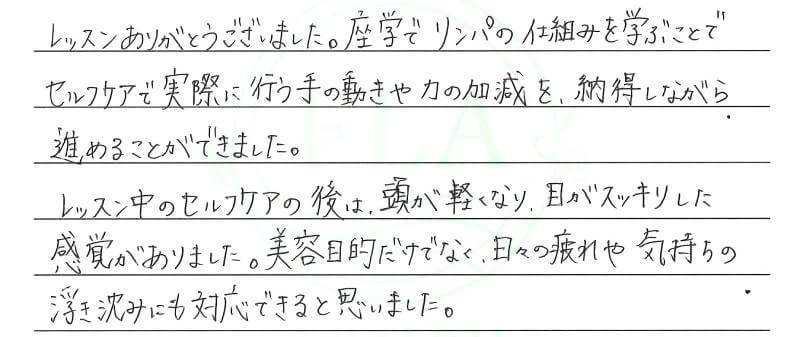 レッスンありがとうございました。座学でリンパの仕組みを学ぶことで
セルフケアで実際に行う手の動きや力の加減を、納得しながら
進めることができました。
レッスン中のセルフケアの後は、頭が軽くなり、目がスッキリした
感覚がありました。美容目的だけでなく、日々の疲れや気持ちの
浮き沈みにも対応できると思いました。
ELA